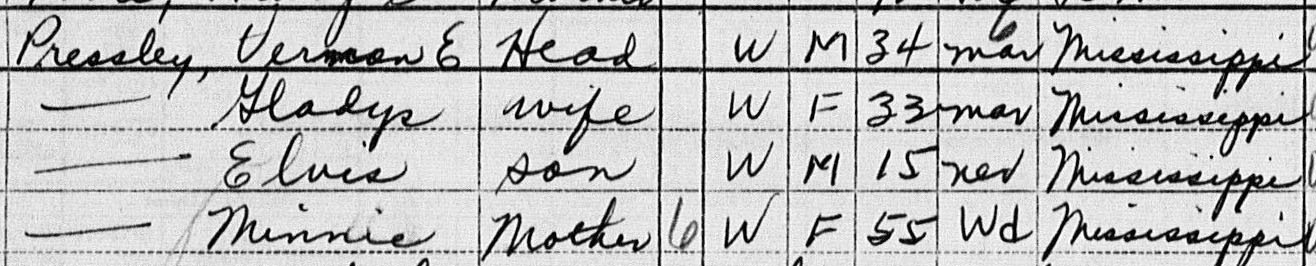 Pressley, Vernon E Head W M 34 mar Mississippi
— Gladys wife W F 33 mar Mississippi
— Elvis son W M 15 nev Mississippi
— Minnie Mother 6 W F 55 Wd Mississippi